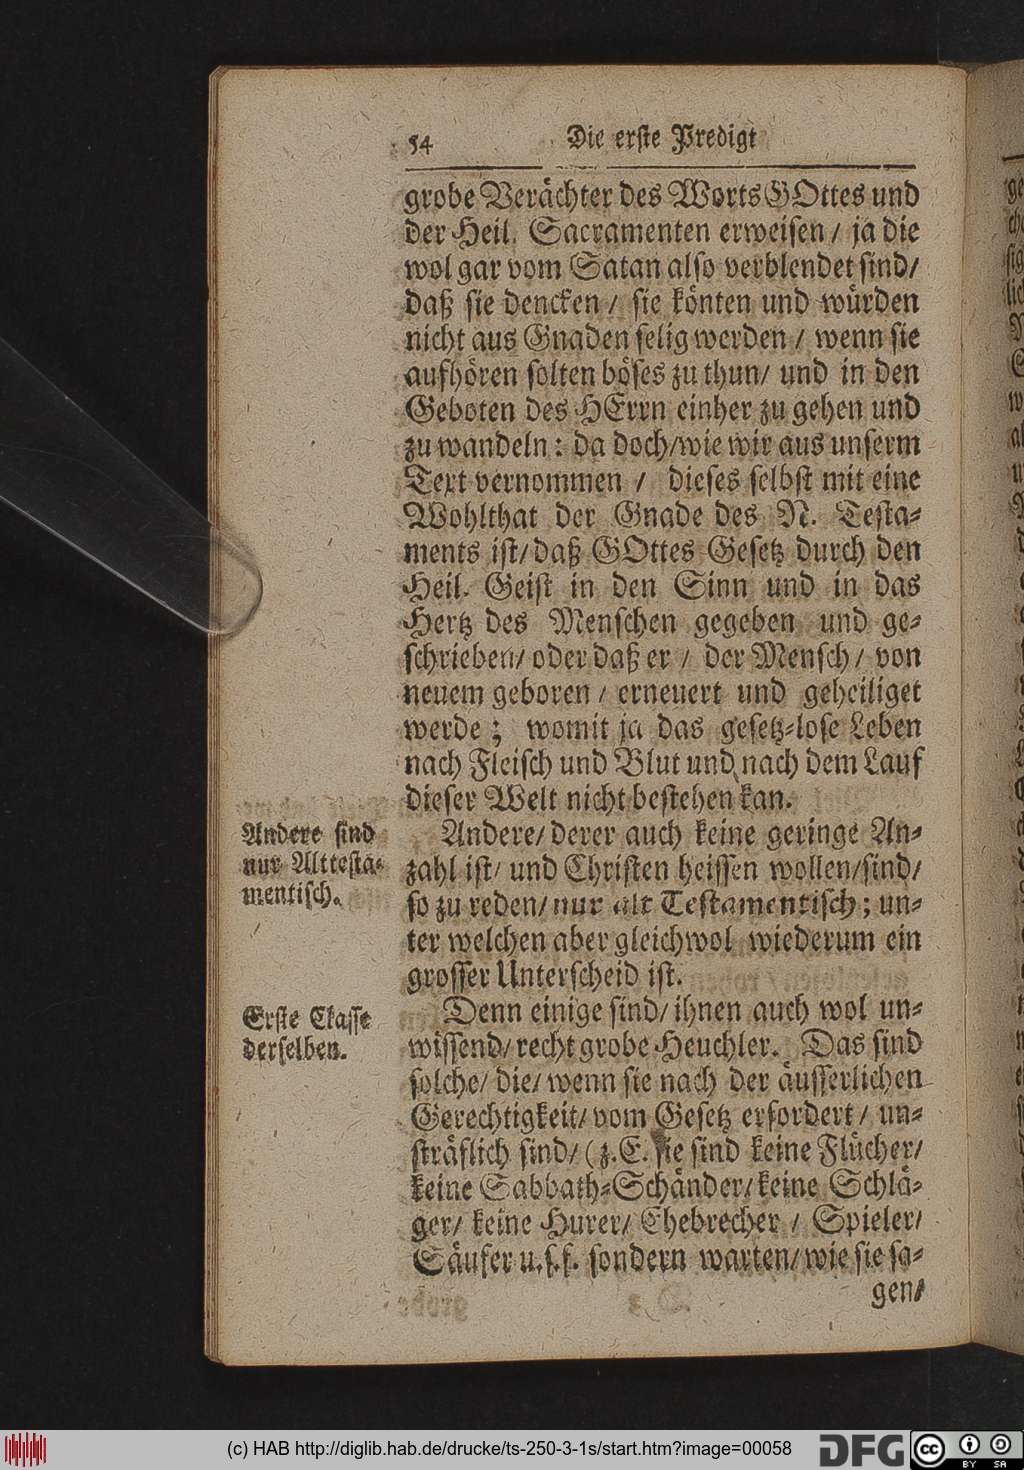 54 Die erste Predigt
grobe Verächter des Worts GOttes und
der Heil. Sacramenten erweisen / ja die
wol gar vom Satan also verblendet sind/
daß sie dencken / sie könten und würden
nicht aus Gnaden selig werden / wenn sie
aufhören solten böses zu thun/ und in den
Geboten des HErrn einher zu gehen und
zu wandeln: da doch/wie wir aus unserm
Text vernommen / dieses selbst mit eine
Wohlthat der Gnade des N. Testa-
ments ist/ daß GOttes Gesetz durch den
Heil. Geist in den Sinn und in das
Hertz des Menschen gegeben und ge-
schrieben/ oder daß er / der Mensch / von
neuem geboren / erneuert und geheiliget
werde ; womit ja das gesetz-lose Leben
nach Fleisch und Blut und nach dem Lauf
dieser Welt nicht bestehen kan.
Andere sind
nur Alttesta-
mentisch.
Andere/ derer auch keine geringe An-
zahl ist/ und Christen heissen wollen/sind/
so zu reden/ nur alt Testamentisch; un-
ter welchen aber gleichwol wiederum ein
grosser Unterscheid ist.
Erste Classe
derselben.
Denn einige sind/ ihnen auch wol un-
wissend/ recht grobe Heuchler. Das sind
solche/ die/ wenn sie nach der äusserlichen
Gerechtigkeit/ vom Gesetz erfordert / un-
sträflich sind/ (z. E. sie sind keine Flücher/
keine Sabbath-Schänder/ keine Schlä-
ger/ keine Hurer/ Ehebrecher / Spieler/
Säufer u.s.f. sondern warten/ wie sie sa-
gen/
(c) HAB http://diglib.hab.de/drucke/ts-250-3-1s/start.htm?image=00058
DFG
cc
BY SA